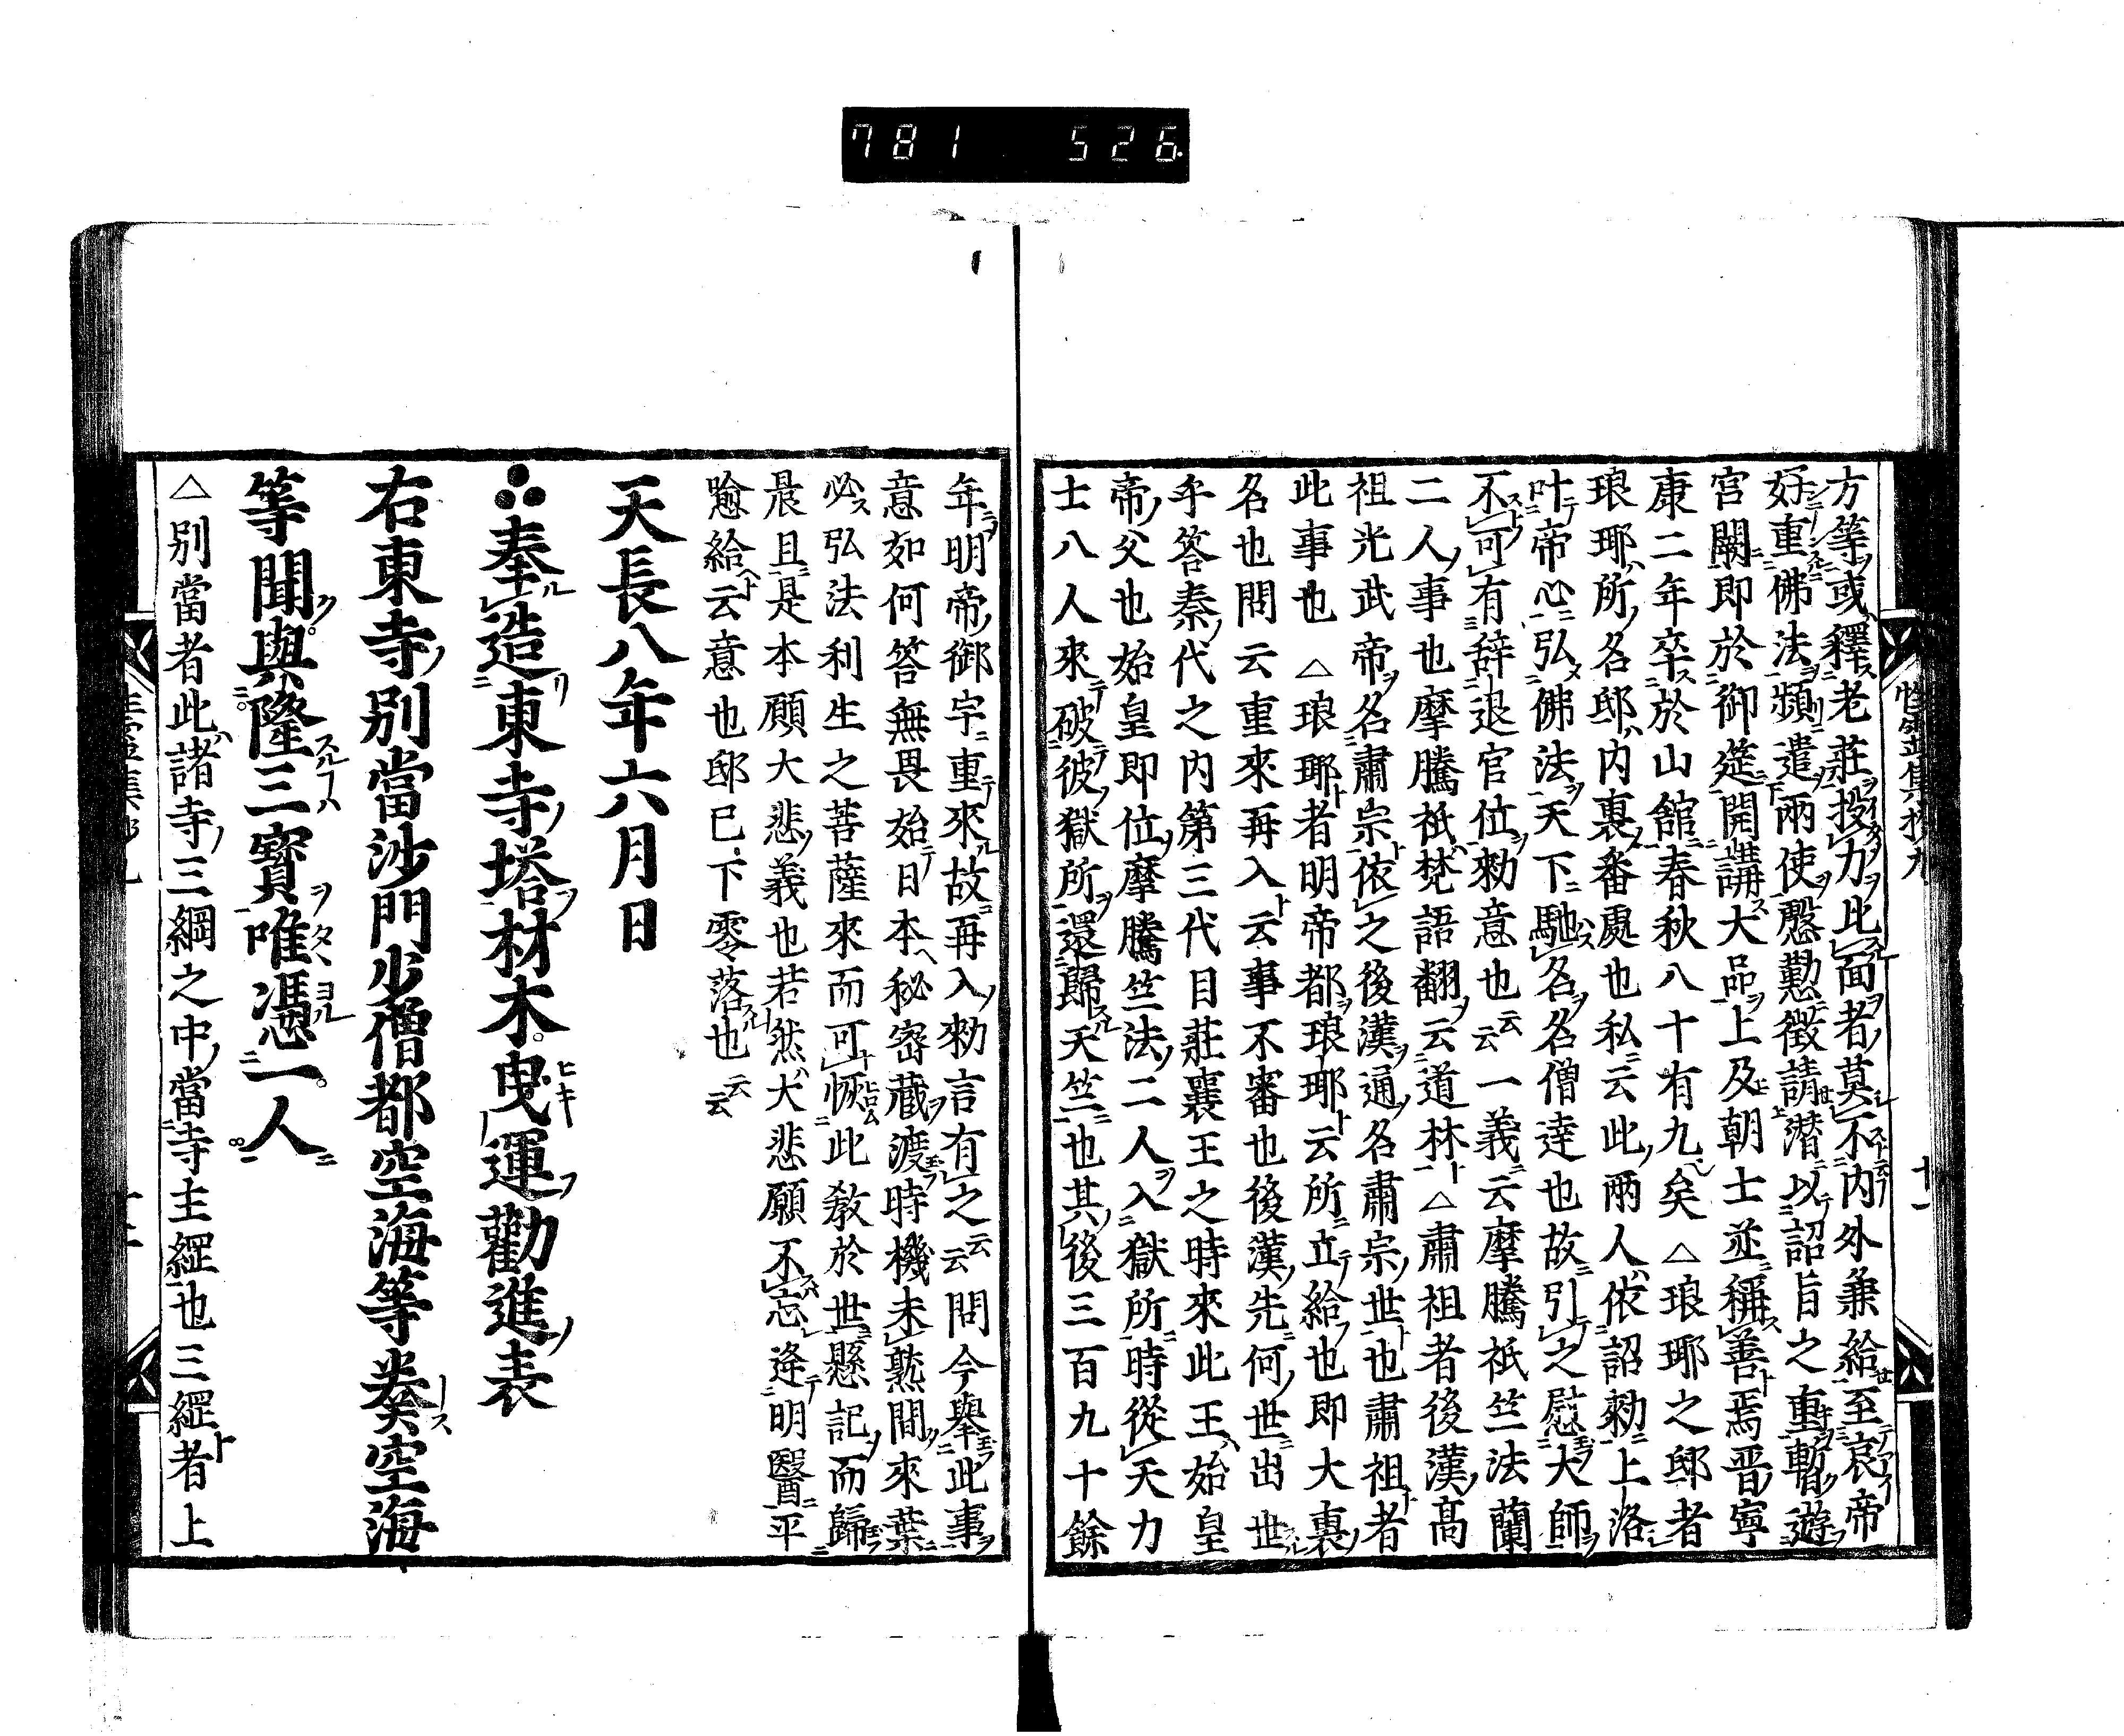 781 526
方等或釋老莊投力此面者莫不内外兼給至哀帝
好重佛法頻遣兩使慇懃徴請潜以詔旨之重暫遊
宮闕即於御筵開講大品上及朝士並稱善焉晋寧
康二年卒於山館春秋八十有九矣△琅耶之邸者
琅耶所名邸内裏番處也私云此兩人依詔勅上洛
叶帝心弘佛法天下馳名名僧逹也故引之慰大師
不可有辞退官位勅意也云云一義云摩騰祇竺法蘭
二人事也摩騰祇梵語翻云道林△肅祖者後漢髙
祖光武帝名肅宗依之後漢通名肅宗世也肅祖者
此事也△琅耶者明帝都琅耶云所立給也即大裏
名也問云重來再入云事不審也後漢先何世出世
乎答秦代之内第三代目莊襄王之時來此王始皇
帝父也始皇即位摩騰竺法二人入獄所時從天力
士八人來破彼獄所還歸天竺也其後三百九十餘
年明帝御宇重來故再入勅言有之云云問今舉此事
意如何答無畏始日本秘密蔵渡時機未熟間來葉
必弘法利生之菩薩來而可恢此敎於世懸記而歸
晨且是本願大悲義也若然大悲願不忘逢明醫平
愈給云意也邸已下零落也云云
天長八年六月日
奉造東寺塔材木曳運勸進表
右東寺別當沙門少僧都空海等奏空海
等聞興隆三寳唯憑一人
△別當者此諸寺三綱之中當寺主綱也三綱者上